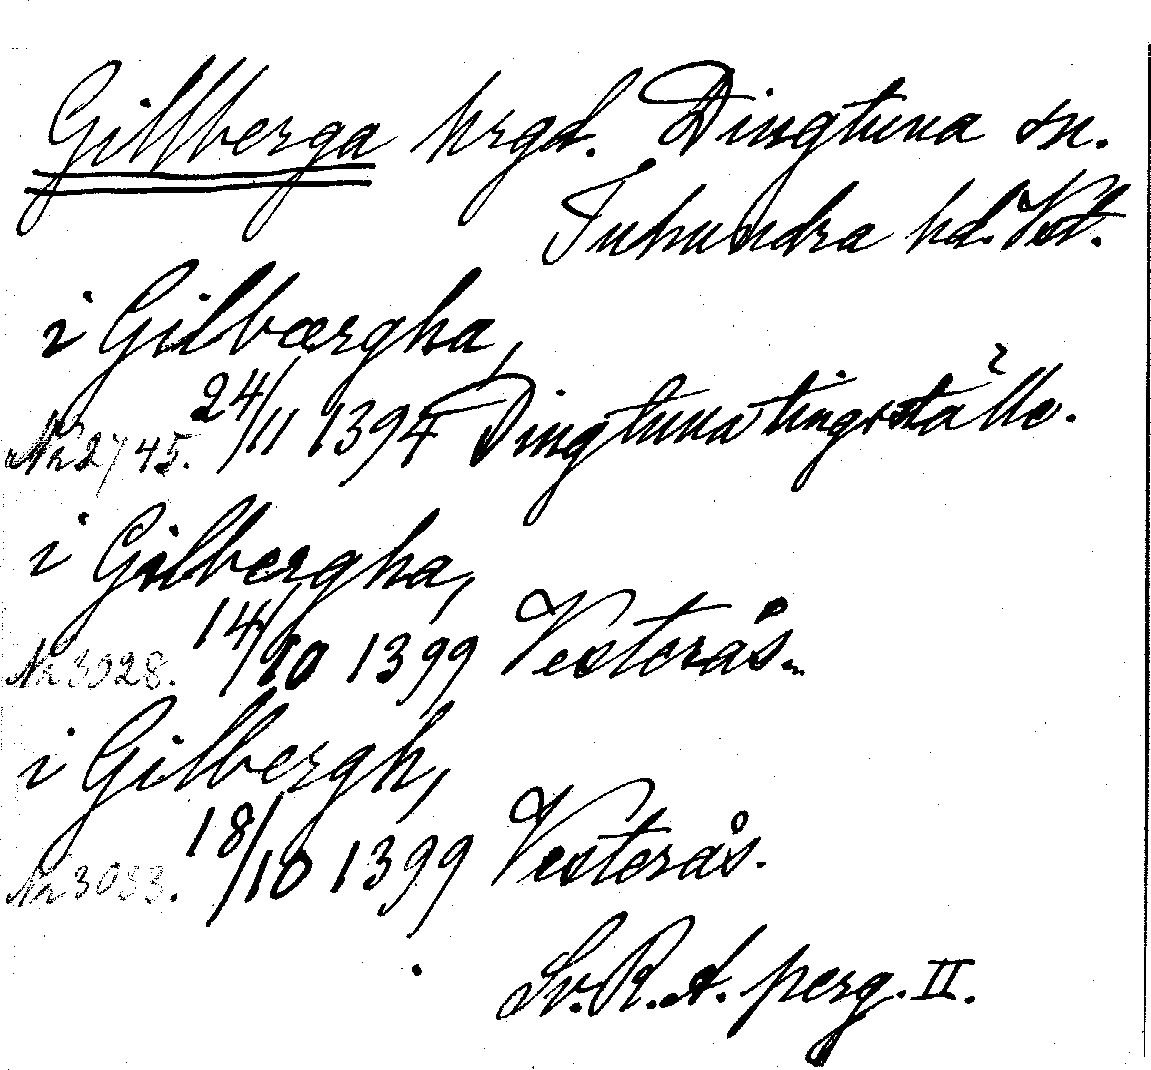 Gillberga hrgd. Dingtuna sn.
Tuhundra hd. Vstl.
i Gilbærgha,
Nr 2745. 24/11 1394 Dingtuna tingställe.
i Gilbergha,
Nr 3028. 14/10 1399 Vesterås.
i Gilbergh,
Nr 3033. 18/10 1399 Vesterås.
Sv. R. A. perg. II.